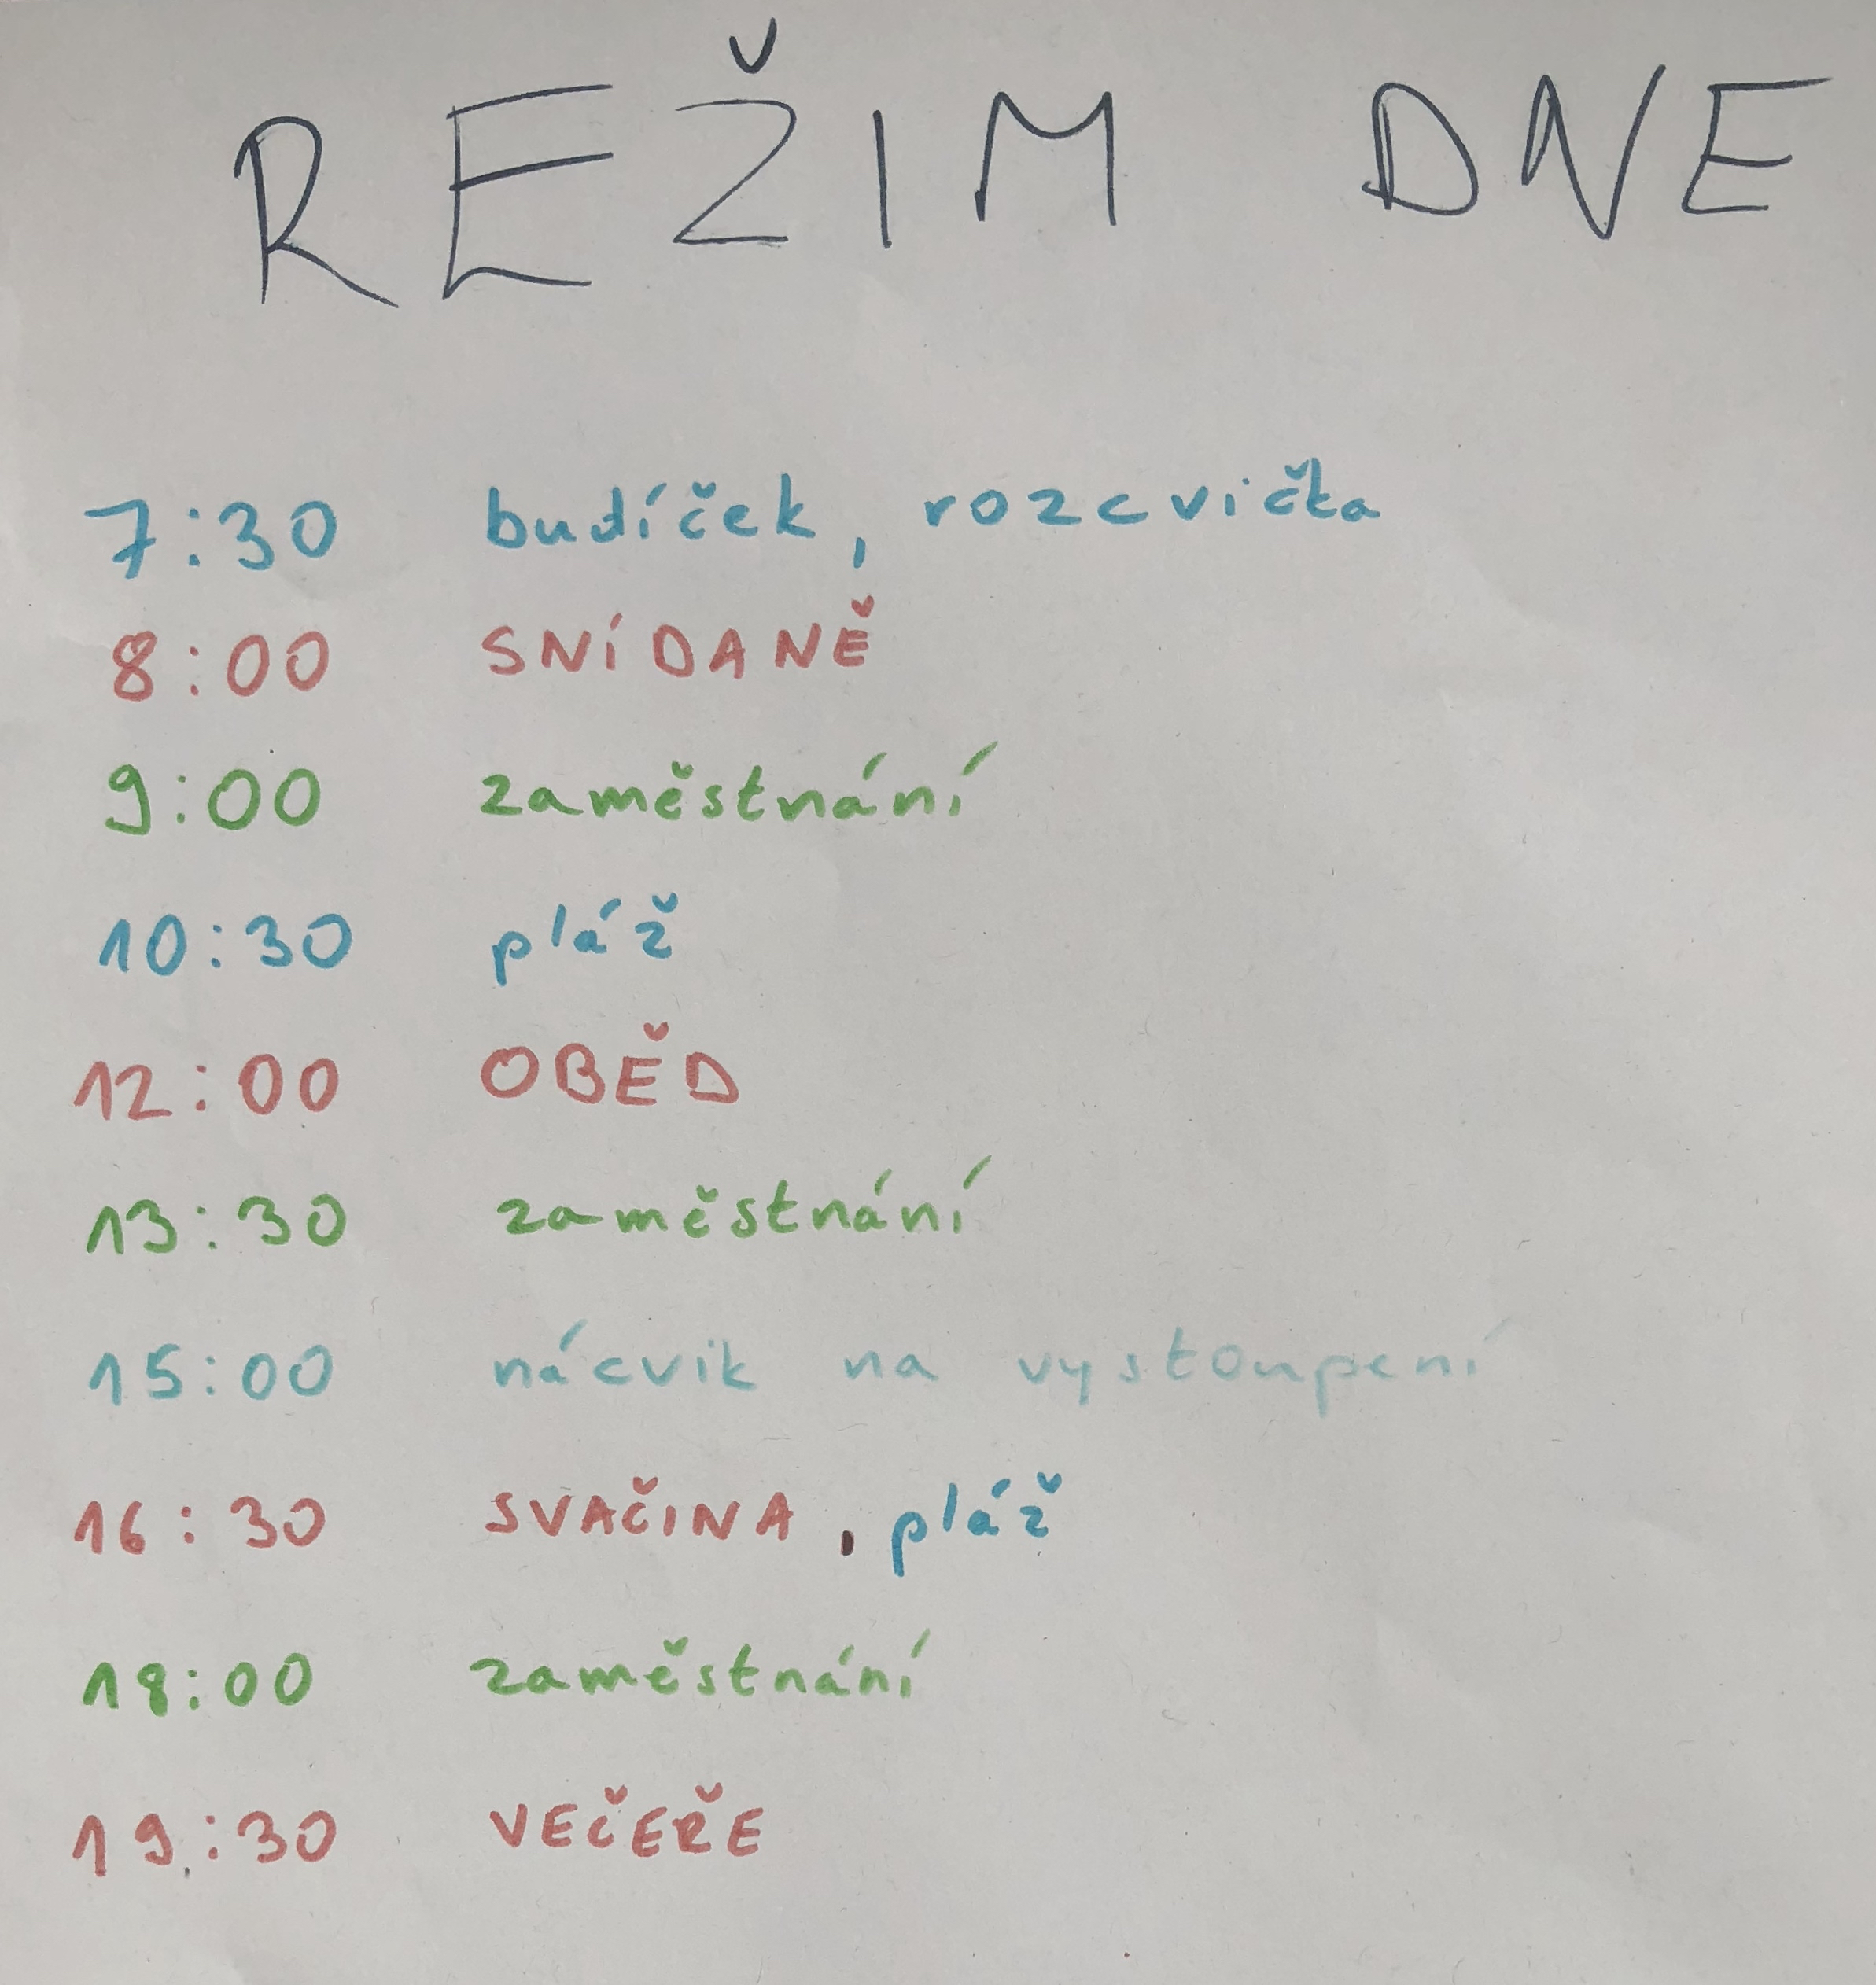 REŽIM DNE
7:30 budíček, rozcvička
8:00 SNÍDANĚ
9:00 zaměstnání
10:30 pláž
12:00 OBĚD
13:30 zaměstnání
15:00 nácvik na vystoupení
16:30 SVAČINA, pláž
18:00 zaměstnání
19:30 VEČEŘE